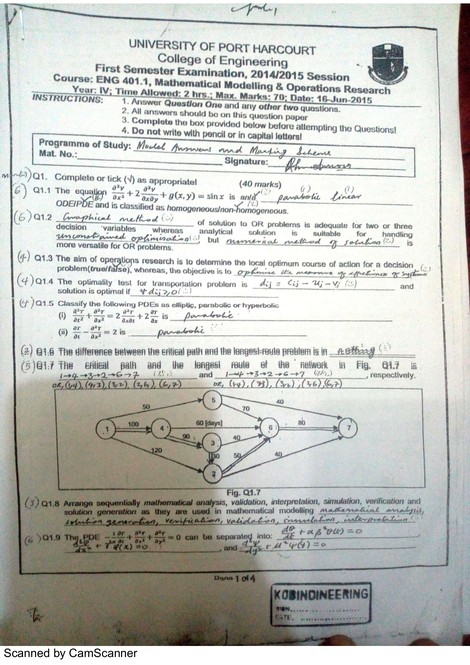 UNIVERSITY OF PORT HARCOURT
College of Engineering
First Semester Examination, 2014/2015 Session
Course: ENG 401.1, Mathematical Modelling & Operations Research
Year: IV; Time Allowed: 2 hrs.; Max. Marks: 70; Date: 16-Jun-2015
INSTRUCTIONS: 1. Answer Question One and any other two questions.
2. All answers should be on this question paper
3. Complete the box provided below before attempting the Questions!
4. Do not write with pencil or in capital letters!
Programme of Study: Model Answers and Marking Scheme
Mat. No.: Signature:
Q1. Complete or tick (√) as appropriate! (40 marks)
(6) Q1.1 The equation ∂²y/∂x² + 2 ∂²y/∂x∂y + g(x,y) = sin x is an/a parabolic linear
ODE/PDE and is classified as homogeneous/non-homogeneous.
(6) Q1.2 Graphical method (2) of solution to OR problems is adequate for two or three
decision variables whereas analytical solution is suitable for handling
unconstrained optimisation (2) but numerical method of solution (2) is
more versatile for OR problems.
(4) Q1.3 The aim of operations research is to determine the local optimum course of action for a decision
problem (true/false), whereas, the objective is to optimise the measure of effectiveness of systems
(4) Q1.4 The optimality test for transportation problem is dij = Cij - Ui - Vj and
solution is optimal if ∀ dij ≥ 0
(4) Q1.5 Classify the following PDEs as elliptic, parabolic or hyperbolic
(i) ∂²T/∂x² + ∂²T/∂t² = 2 ∂²T/∂x∂t + 2 ∂T/∂x is parabolic
(ii) ∂T/∂t − ∂²T/∂x² = 2 is parabolic
(2) Q1.6 The difference between the critical path and the longest route problem is in nothing (2)
(5) Q1.7 The critical path and the longest route of the network in Fig. Q1.7 is
1→4→3→2→6→7 and 1→4→3→2→6→7, respectively.
or, (1,4), (4,3), (3,2), (2,6), (6,7) or, (1,4), (4,3), (3,2), (2,6), (6,7)
50 5 40
70
1 100 4 60 [days] 6 80 7
90 3 40
120 50 40
2
Fig. Q1.7
(3) Q1.8 Arrange sequentially mathematical analysis, validation, interpretation, simulation, verification and
solution generation as they are used in mathematical modelling mathematical analysis,
solution generation, verification, validation, simulation, interpretation
(6) Q1.9 The PDE can be separated into:
and
Page 1 of 4
KOBINDINEERING
SIGN
DATE
Scanned by CamScanner